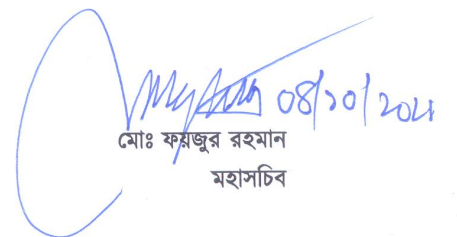 08/10/2021
মোঃ ফয়জুর রহমান
মহাসচিব